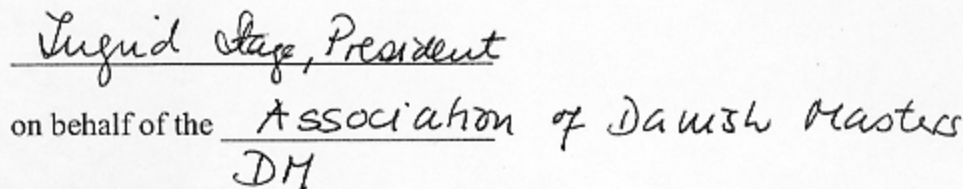 Ingrid Stage, President
on behalf of the Association of Danish Masters
DM